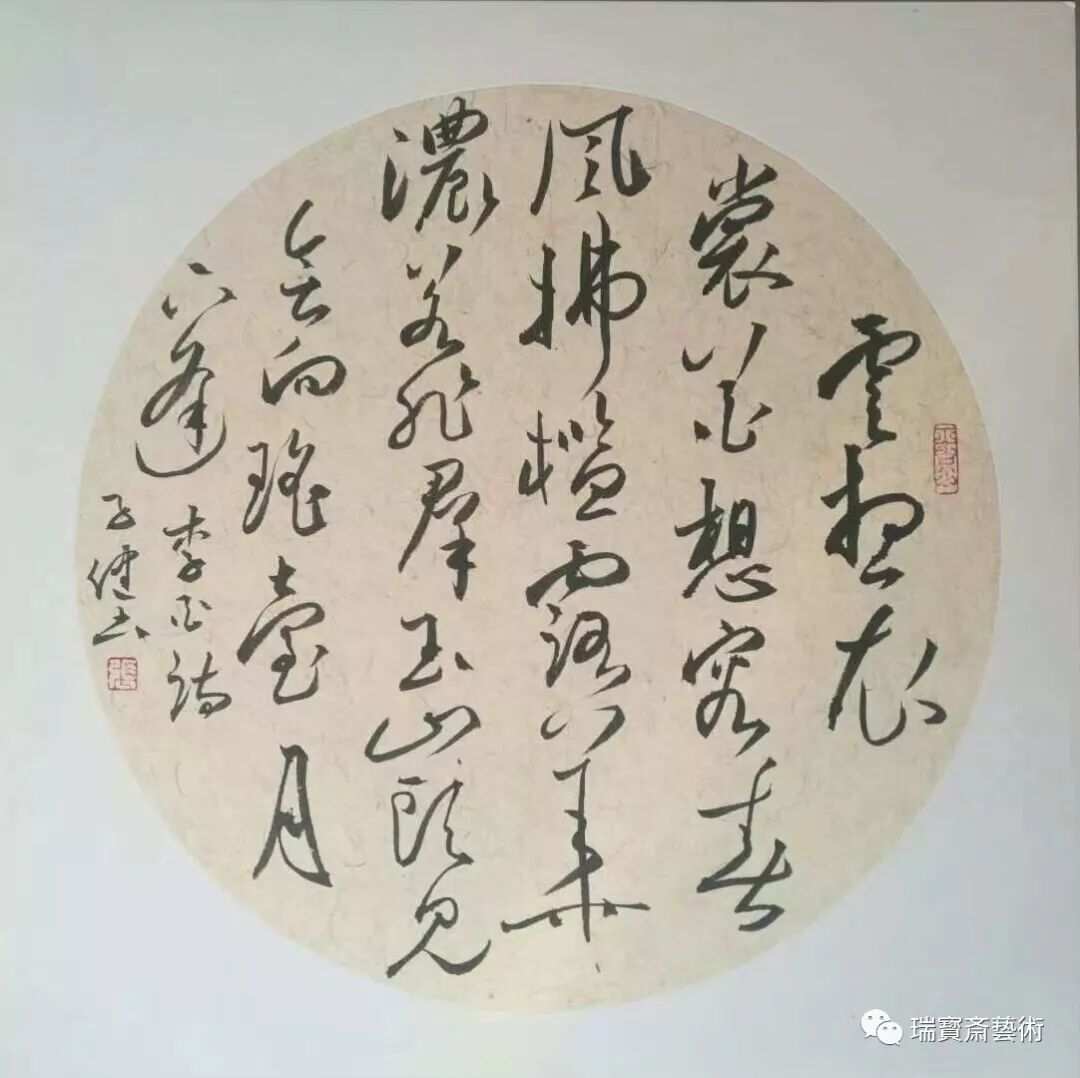 雲想衣
裳花想容春
風拂檻露華
濃若非羣玉山頭見
会向瑤臺月
下逢
李白詩
子健书
瑞寳斎藝術